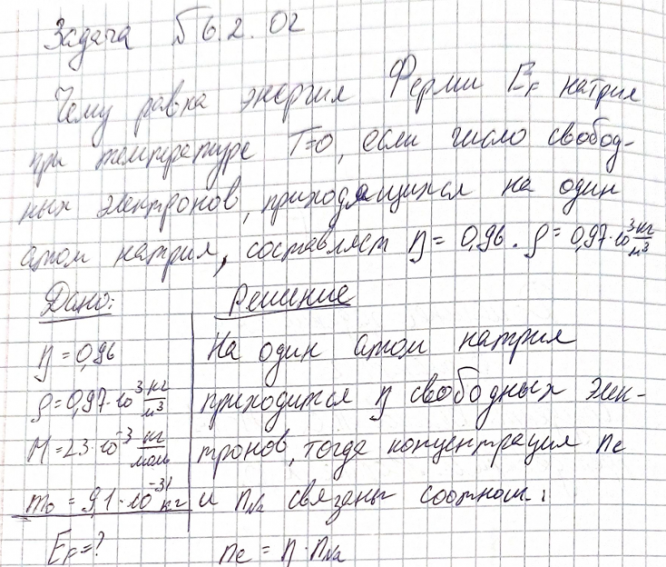 Задача № 6.2.02
Чему равна энергия Ферми E_F натрия
при температуре T=0, если число свобод-
ных электронов, приходящихся на один
атом натрия, составляет η = 0,96. ρ = 0,97·10³ кг/м³
Дано:
η = 0,96
ρ = 0,97·10³ кг/м³
M = 23·10⁻³ кг/моль
m₀ = 9,1·10⁻³¹ кг
E_F = ?
Решение
На один атом натрия
приходится η свободных элек-
тронов, тогда концентрация n_e
и n_Na связаны соотнош.:
n_e = η · n_Na